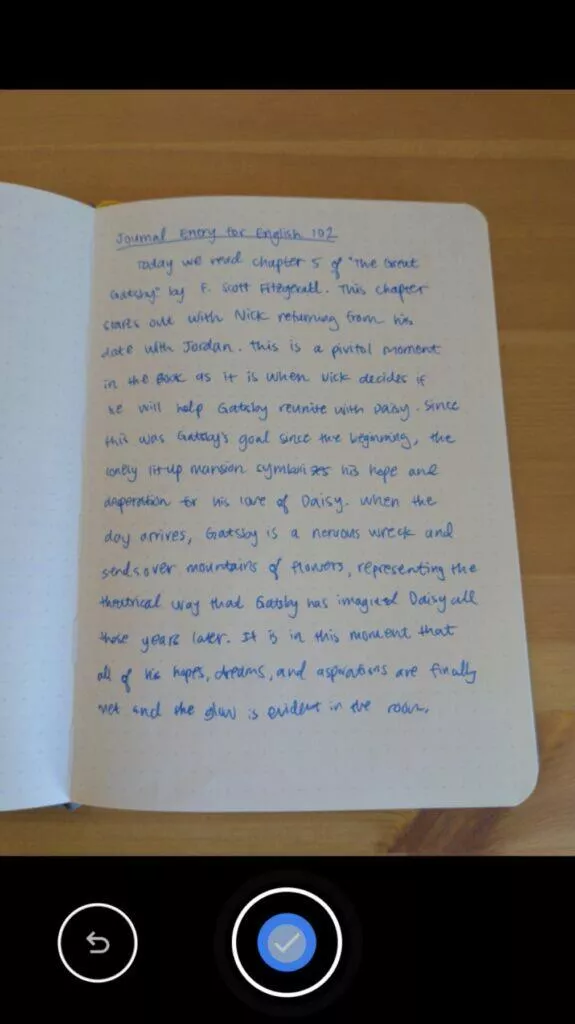 Journal Entry for English 102
Today we read chapter 5 of "The Great
Gatsby" by F. Scott Fitzgerald. This chapter
starts out with Nick returning from his
date with Jordan. This is a pivitol moment
in the book as it is when Nick decides if
he will help Gatsby reunite with Daisy. Since
this was Gatsby's goal since the beginning, the
lonely lit up mansion symbolises his hope and
desperation for his love of Daisy. When the
day arrives, Gatsby is a nervous wreck and
sends over mountains of flowers, representing the
theatrical way that Gatsby has imagined Daisy all
those years later. It is in this moment that
all of his hopes, dreams, and aspirations are finally
met and the glow is evident in the room.